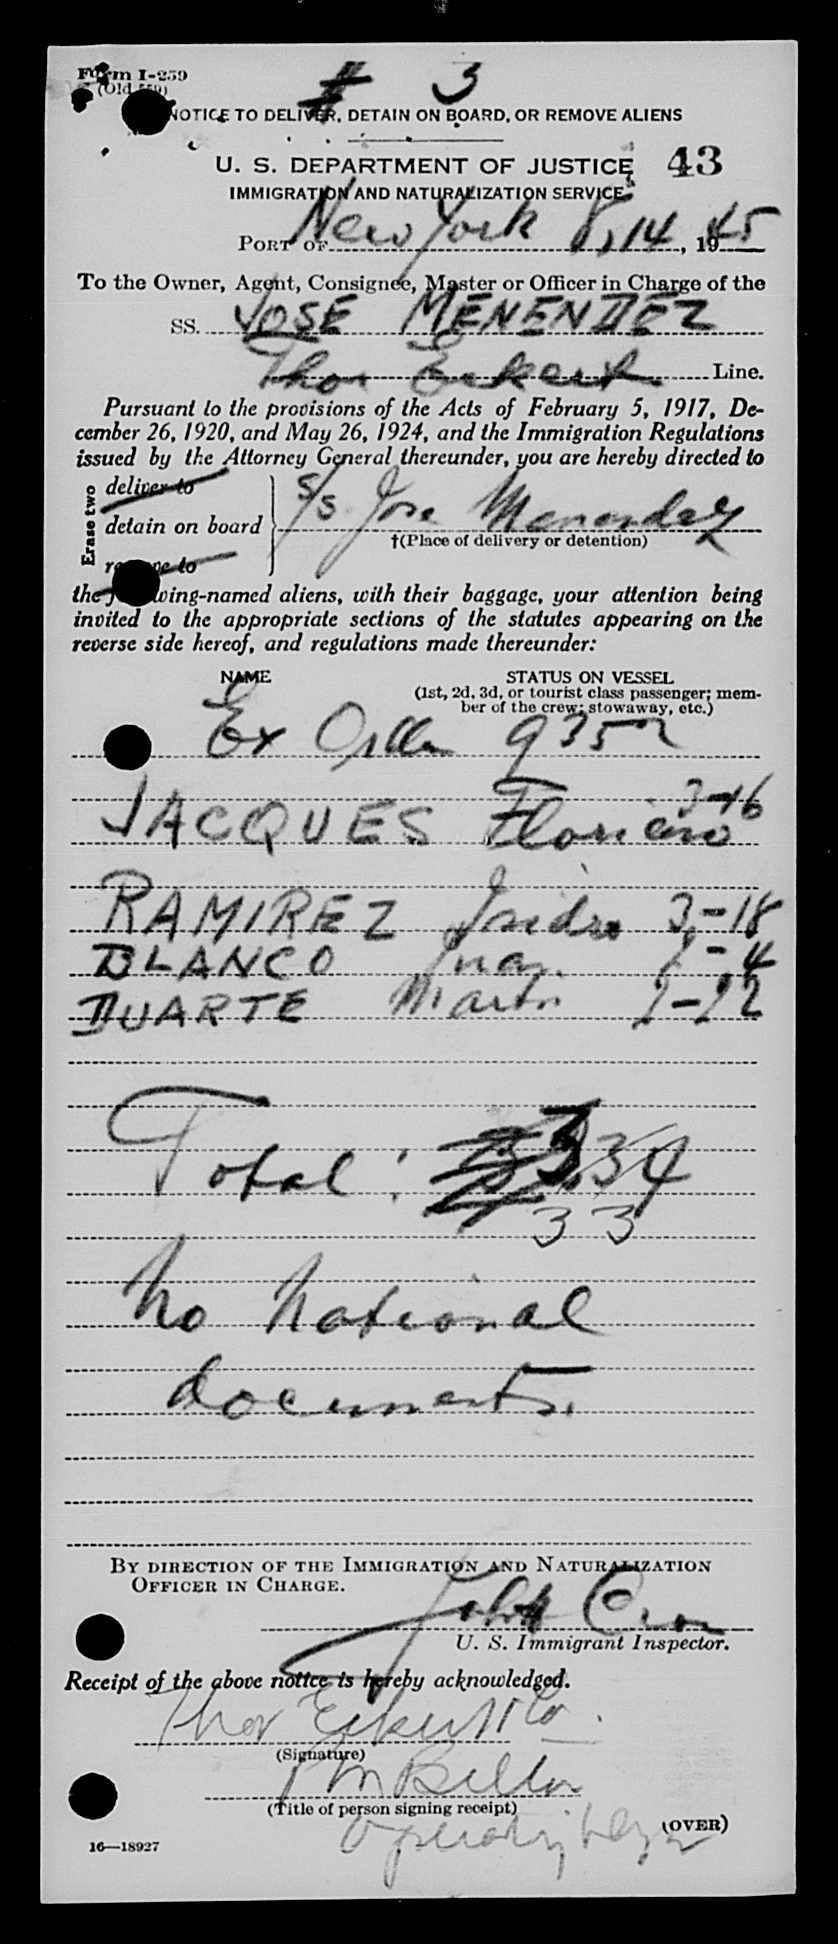 Form I-259
(Old 559)
# 3
NOTICE TO DELIVER, DETAIN ON BOARD, OR REMOVE ALIENS
U. S. DEPARTMENT OF JUSTICE 43
IMMIGRATION AND NATURALIZATION SERVICE
PORT OF New York 8, 14, 1945
To the Owner, Agent, Consignee, Master or Officer in Charge of the
SS. JOSE MENENDEZ
Thor Eckert Line.
Pursuant to the provisions of the Acts of February 5, 1917, De-
cember 26, 1920, and May 26, 1924, and the Immigration Regulations
issued by the Attorney General thereunder, you are hereby directed to
Erase two
deliver to
detain on board S/S Jose Menendez
†(Place of delivery or detention)
remove to
the following-named aliens, with their baggage, your attention being
invited to the appropriate sections of the statutes appearing on the
reverse side hereof, and regulations made thereunder:
NAME STATUS ON VESSEL
(1st, 2d, 3d, or tourist class passenger; mem-
ber of the crew; stowaway, etc.)
Ex
JACQUES Floriano 3-16
RAMIREZ Isidro 3-18
BLANCO Juan 2-4
DUARTE Martin 2-22
Total: 34
33
No National
documents.
BY DIRECTION OF THE IMMIGRATION AND NATURALIZATION
OFFICER IN CHARGE.
John
U. S. Immigrant Inspector.
Receipt of the above notice is hereby acknowledged.
Thor Eckert & Co.
(Signature)
(Title of person signing receipt)
Operating
(OVER)
16—18927